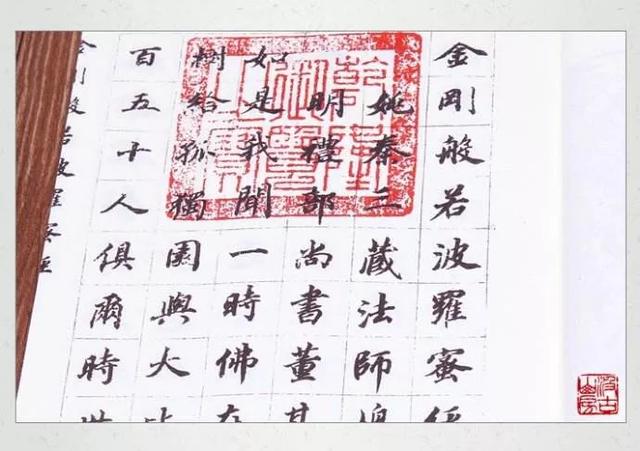 金剛般若波羅蜜經
姚秦三藏法師
明禮部尚書董其
如是我聞一時佛在
樹給孤獨園與大比
百五十人俱爾時世
金剛般若波羅蜜經
乾隆御覽之寶